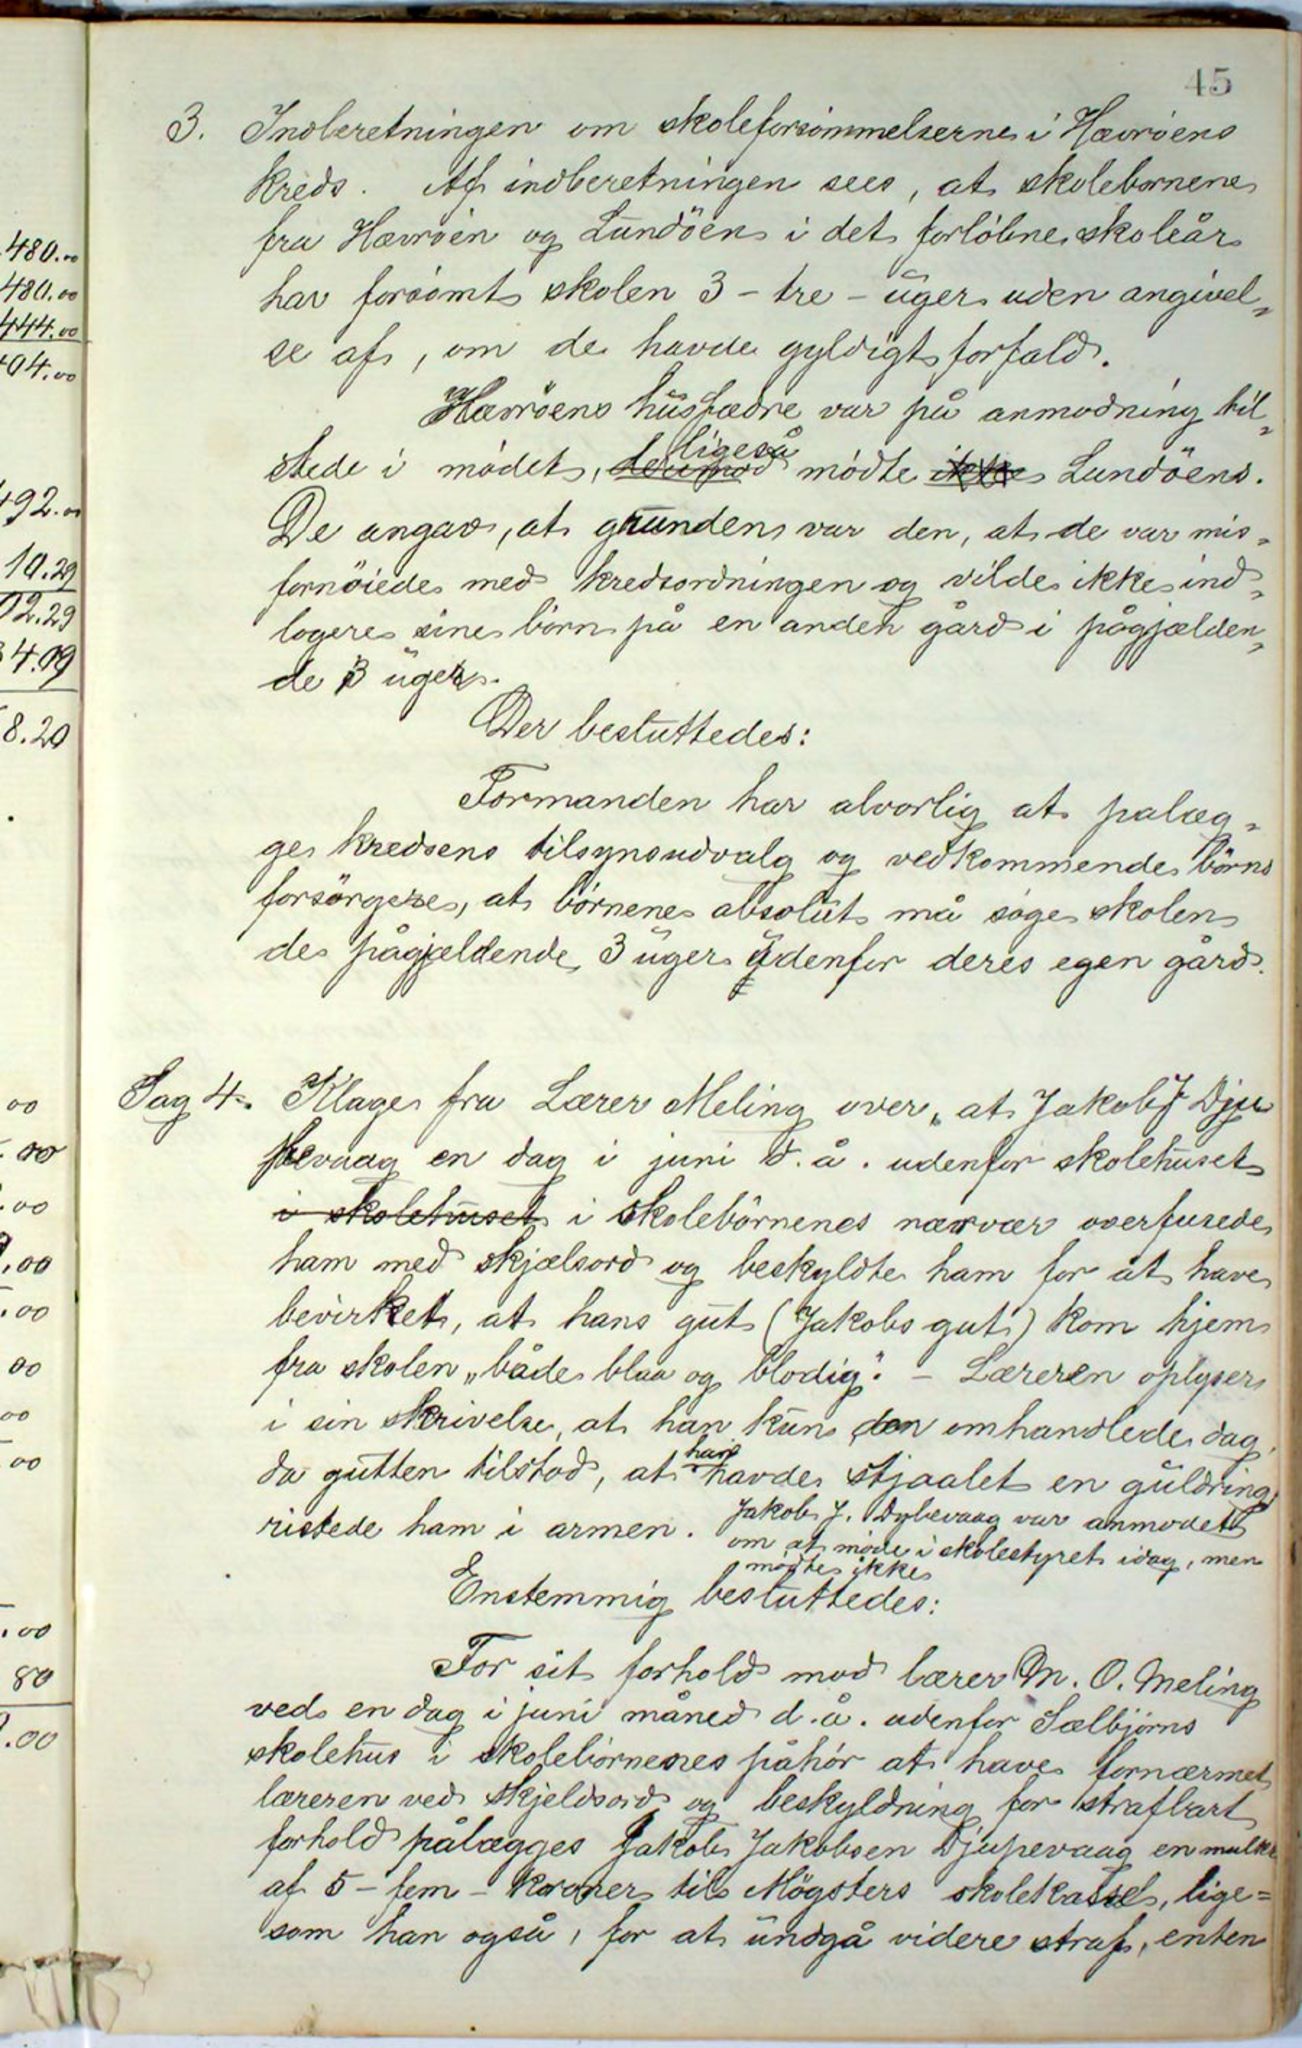 45
3. Indberetningen om skoleforsømmelserne i Hævrøens
kreds. Af indberetningen sees, at skolebørnene
fra Hævrøen og Lundøen i det forløbne skoleår
har forsømt skolen 3 - tre - uger uden angivel„
se af, om de havde gyldigt forfald.
Hævrøens husfædre var på anmodning til„
ligeså
stede i mødet, derimod mødte ikke Lundøens.
De angav, at grunden var den, at de var mis„
fornøiede med kredsordningen og vilde ikke ind„
logere sine børn på en anden gård i pågjælden„
de 3 uger.
Der besluttedes:
Formanden har alvorlig at palæg„
ge kredsens tilsynsudvalg og vedkommende børns
forsørgere, at børnene absolut må søge skolen
de pågjældende 3 uger udenfor deres egen gård.
Sag 4. Klage fra Lærer Meling over, at Jakob J Dju
pevaag en dag i juni d. å. udenfor skolehuset
i skolehuset i skolebørnenes nærvær overfusede
ham med skjælsord og beskyldte ham for at have
bevirket, at hans gut (Jakobs gut) kom hjem
fra skolen „både blaa og blodig". - Læreren oplyser
i sin skrivelse, at han kun den omhandlede dag,
han
da gutten tilstod, at havde stjaalet en guldring
ristede ham i armen. Jakob J. Dybevaag var anmodet
om at møde i skolestyret idag, men
mødte ikke
Enstemmig besluttedes:
For sit forhold mod lærer M. O. Meling
ved en dag i juni måned d. å. udenfor Sælbjørns
skolehus i skolebørnenes påhør at have fornærmet
læreren ved skjeldsord og beskyldning for strafbart
forhold pålægges Jakob Jakobsen Djupevaag en mulkt
af 5 - fem - kroner til Møgsters skolekasse, lige=
som han også, for at undgå videre straf, enten
480.00
480.00
444.00
04.00
492.00
10.29
02.29
4.09
8.20
00
00
.00
.00
.00
00
00
00
.00
80
.00